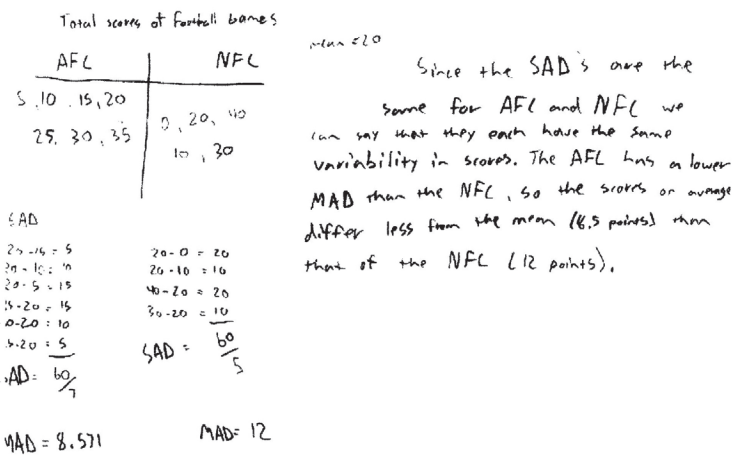 Total scores of Football Games
AFL NFL
5, 10, 15, 20
25, 30, 35
0, 20, 40
10, 30
SAD
20-15 = 5
20-10 = 10
20-5 = 15
35-20 = 15
30-20 = 10
25-20 = 5
SAD = 60/7
MAD = 8.571
20-0 = 20
20-10 = 10
40-20 = 20
30-20 = 10
SAD = 60/5
MAD = 12
mean = 20
Since the SAD's are the
same for AFL and NFL we
can say that they each have the same
variability in scores. The AFL has a lower
MAD than the NFL, so the scores on average
differ less from the mean (8.5 points) than
that of the NFL (12 points).